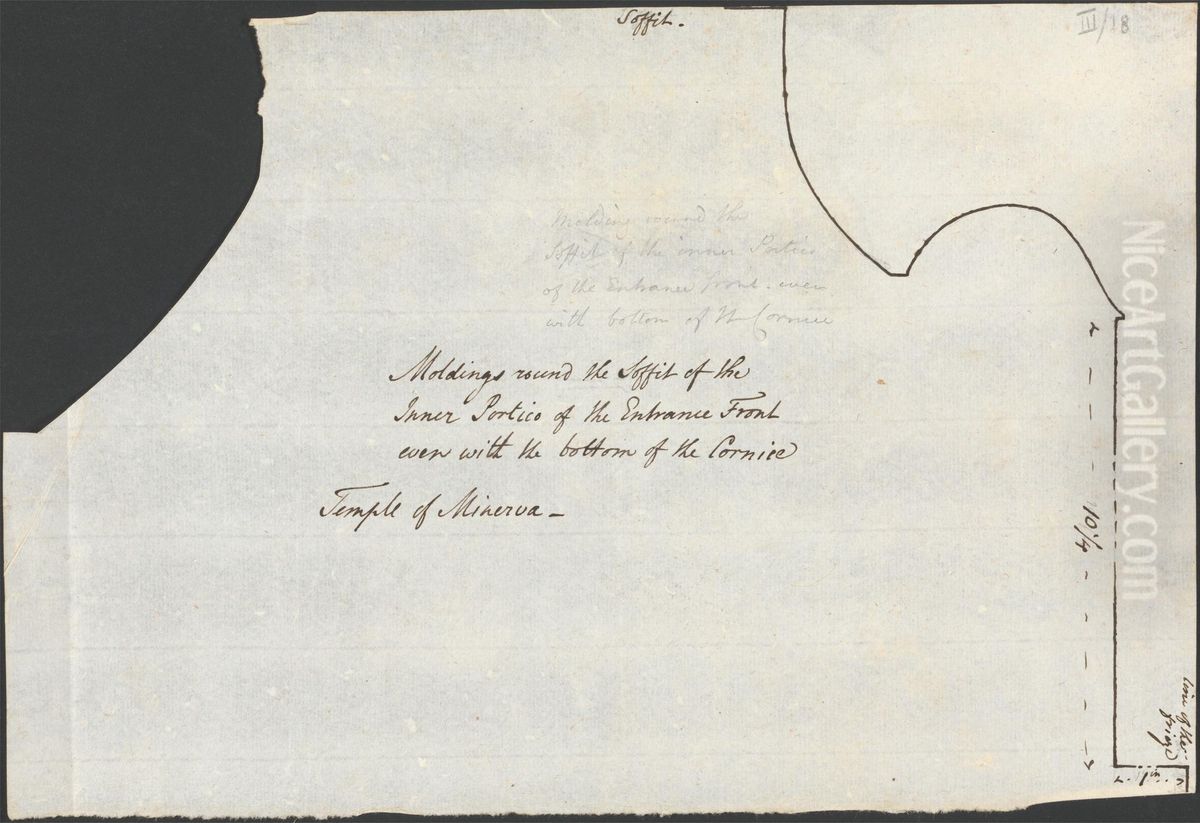 Soffit.
III/18
Molding round the
Soffit of the inner Portico
of the Entrance front. even
with bottom of the Cornice
Moldings round the Soffit of the
Inner Portico of the Entrance Front
even with the bottom of the Cornice
Temple of Minerva -
10 1/4
line of the
frieze
1 in
NiceArtGallery.com